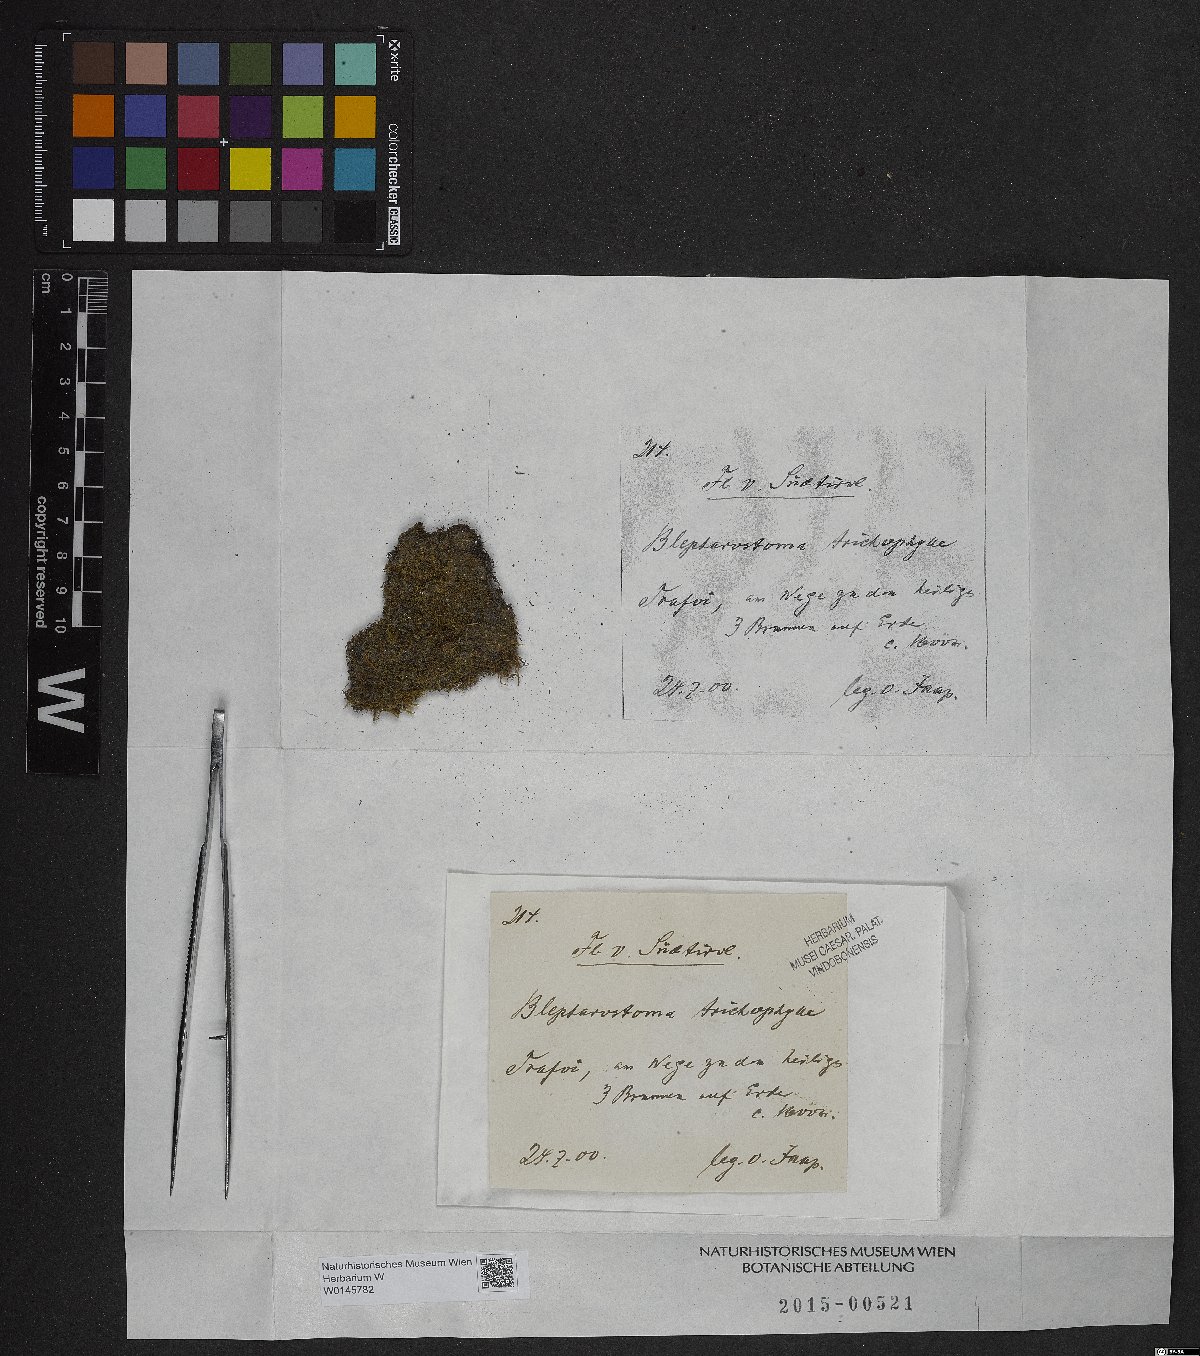 x-rite
colorchecker CLASSIC
mm
0 1 2 3 4 5 6 7 8 9 10
cm
copyright reserved
W
214.
Fl. v. Südtirol.
Blepharostoma trichophylla
Trafoi, am Wege zu den heilige
3 Brunnen auf Erde
24.7.00. leg. O. Jaap.
214.
Fl. v. Südtirol.
Blepharostoma trichophylla
Trafoi, am Wege zu den heilige
3 Brunnen auf Erde
24.7.00. leg. O. Jaap.
HERBARIUM
MUSEI CAESAR. PALAT.
VINDOBONENSIS
Naturhistorisches Museum Wien
Herbarium W
W0145782
NATURHISTORISCHES MUSEUM WIEN
BOTANISCHE ABTEILUNG
2015-00521
BY-SA